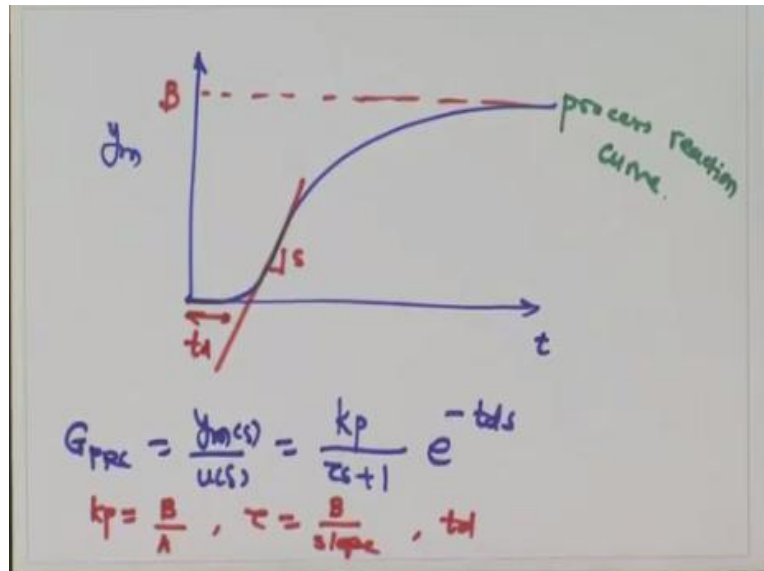 B
ym
process reaction
curve.
s
td
t
GPRC = ym(s)/u(s) = kp/τs+1 e^-tds
kp = B/A , τ = B/slope , td